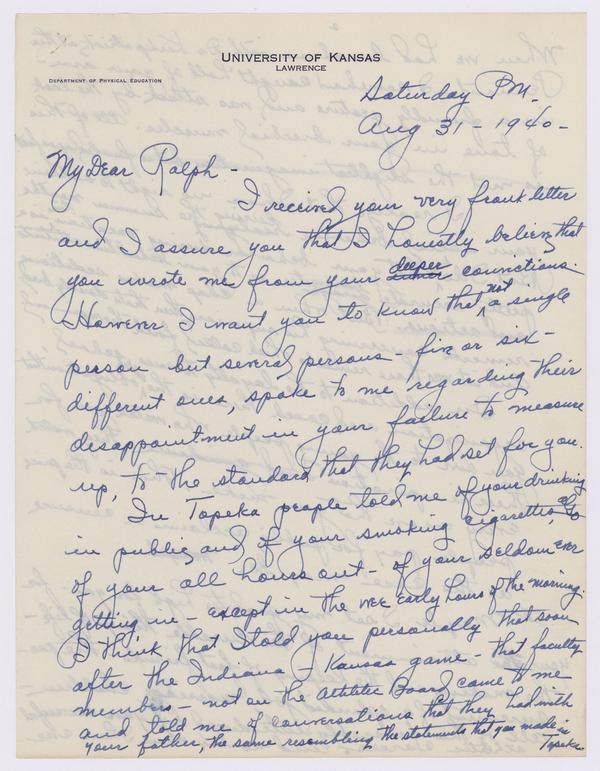 UNIVERSITY OF KANSAS
LAWRENCE
DEPARTMENT OF PHYSICAL EDUCATION
Saturday PM.
Aug 31 - 1940 -
My Dear Ralph -
I received your very frank letter
and I assure you that I honestly believe that
you wrote me from your deeper convictions.
However I want you to know that not a single
person but several persons - five or six -
different ones, spoke to me regarding their
disappointment in your failure to measure
up, to the standard that they had set for you.
In Topeka people told me of your drinking
in public, and of your smoking cigarettes, also
of your all hours out - of your seldom ever
getting in - except in the wee early hours of the morning.
I think that I told you personally that soon
after the Indiana - Kansas game - that faculty
members - not on the Athletic Board came to me
and told me of conversations that they had with
your father, the same resembling the statements that you made in
Topeka